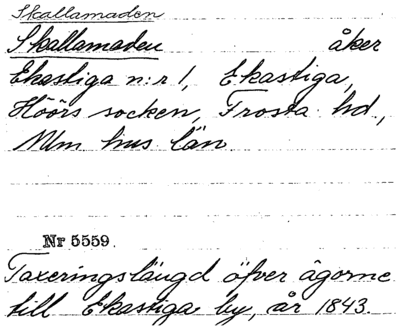 Skallamaden
Skallamaden åker
Ekastiga n:r 1, Ekastiga,
Höörs socken, Frosta hd,
Mlm hus län
Nr 5559.
Taxeringslängd öfver ägorne
till Ekastiga by, år 1843.